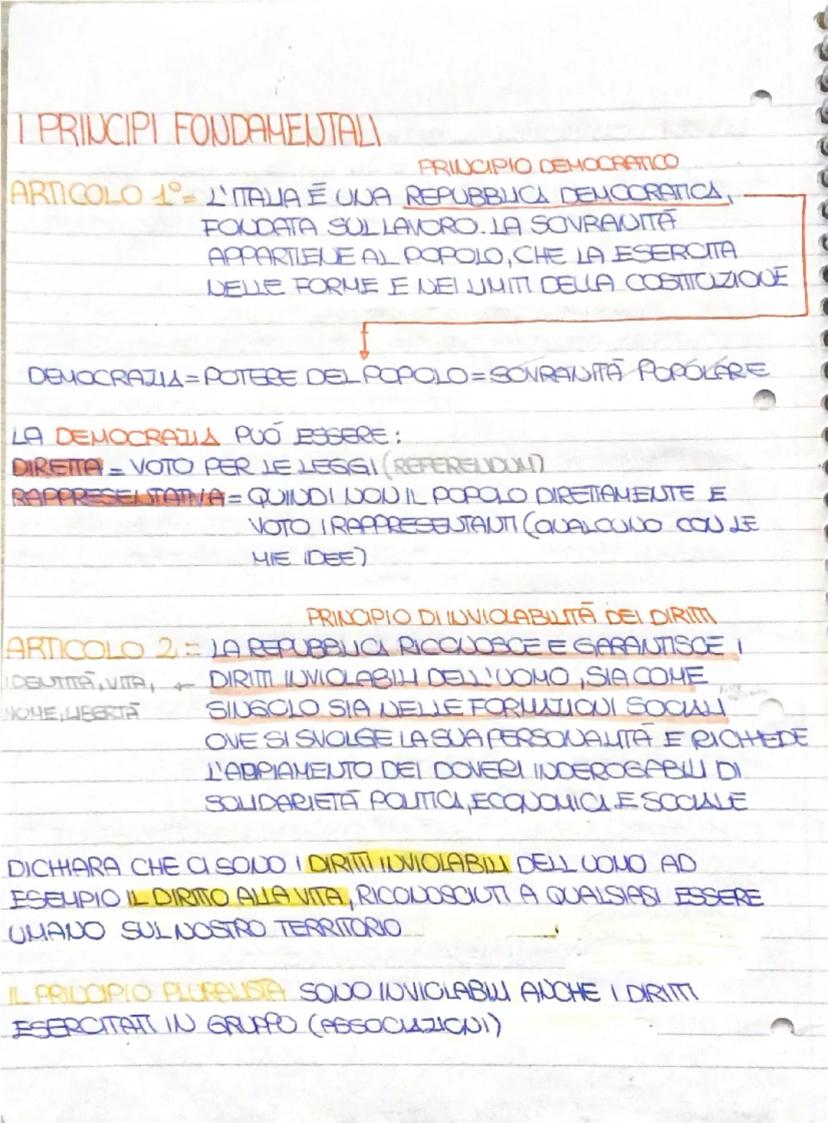 I PRINCIPI FONDAMENTALI
PRINCIPIO DEMOCRATICO
ARTICOLO 1° = L'ITALIA È UNA REPUBBLICA DEMOCRATICA,
FONDATA SUL LAVORO. LA SOVRANITÀ
APPARTIENE AL POPOLO, CHE LA ESERCITA
NELLE FORME E NEI LIMITI DELLA COSTITUZIONE
DEMOCRAZIA = POTERE DEL POPOLO = SOVRANITÀ POPOLARE
LA DEMOCRAZIA PUÓ ESSERE:
DIRETTA = VOTO PER LE LEGGI (REFERENDUM)
RAPPRESENTATIVA = QUINDI NON IL POPOLO DIRETTAMENTE E
VOTO I RAPPRESENTANTI (QUALCUNO CON LE
MIE IDEE)
PRINCIPIO DI INVIOLABILITÀ DEI DIRITTI
ARTICOLO 2 = LA REPUBBLICA RICONOSCE E GARANTISCE I
IDENTITÀ, VITA, ← DIRITTI INVIOLABILI DELL'UOMO, SIA COME
NOME, LIBERTÀ SINGOLO SIA NELLE FORMAZIONI SOCIALI
OVE SI SVOLGE LA SUA PERSONALITÀ E RICHIEDE
L'ADPIAMENTO DEI DOVERI INDEROGABILI DI
SOLIDARIETÀ POLITICA, ECONOMICA E SOCIALE
DICHIARA CHE CI SONO I DIRITTI INVIOLABILI DELL UOMO AD
ESEMPIO IL DIRITTO ALLA VITA, RICONOSCIUTI A QUALSIASI ESSERE
UMANO SUL NOSTRO TERRITORIO
IL PRINCIPIO PLURALISTA SONO INVIOLABILI ANCHE I DIRITTI
ESERCITATI IN GRUPPO (ASSOCIAZIONI)